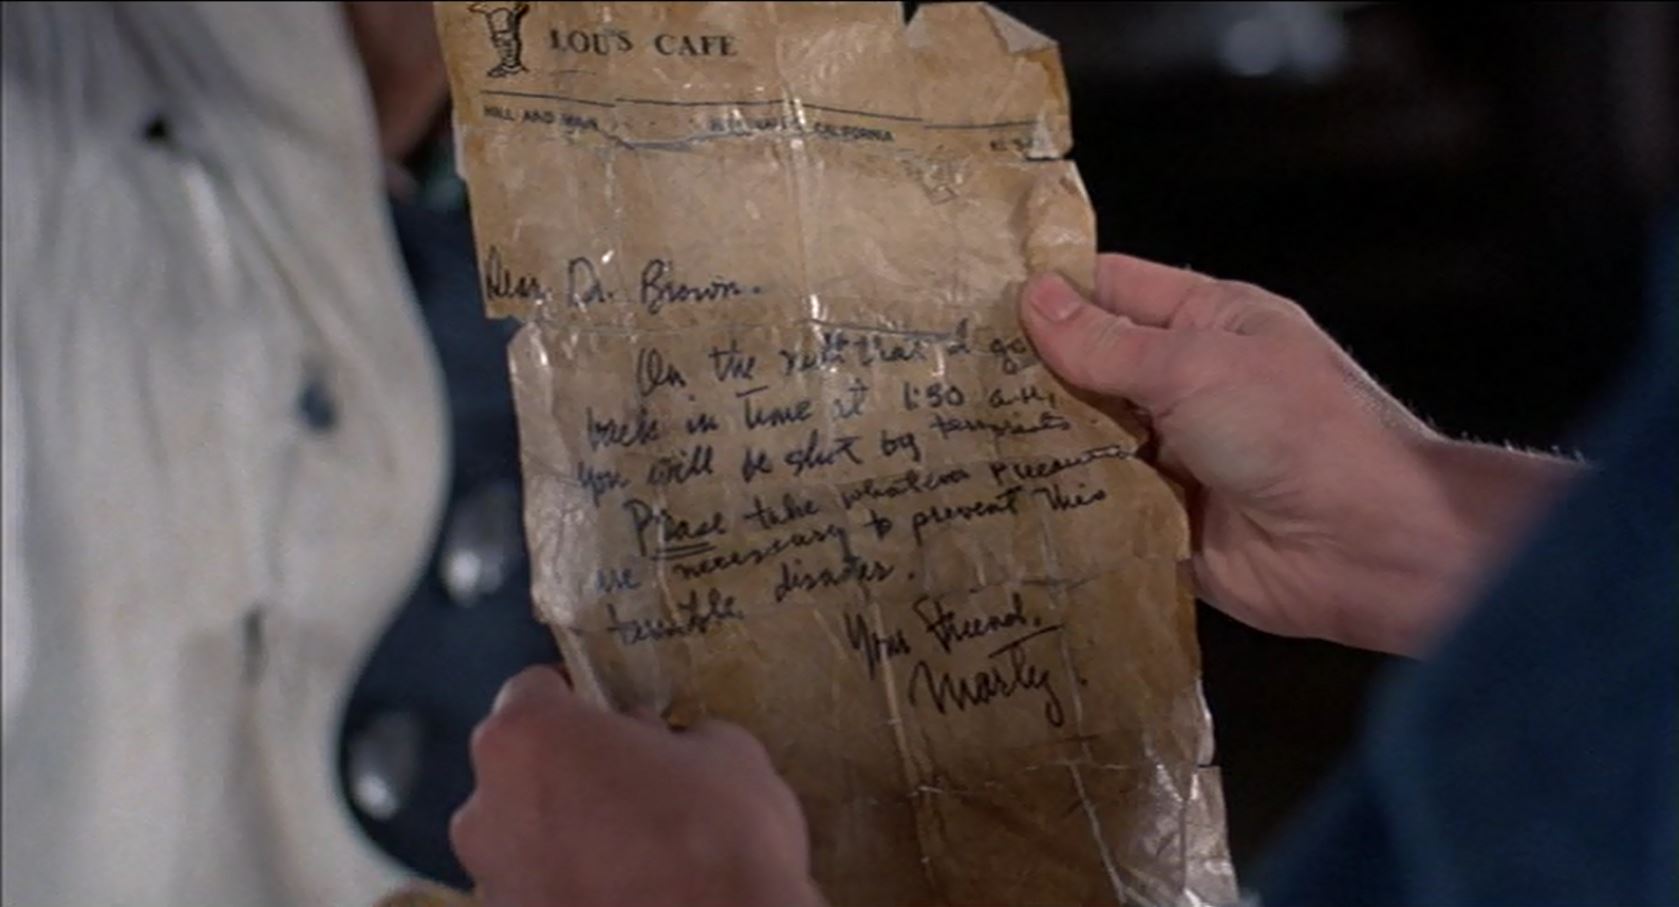 LOU'S CAFE
HILL AND MAIN CALIFORNIA
Dear Dr. Brown.
On the night that I go
back in time at 1:30 a.m,
you will be shot by terrorists.
Please take whatever precautions
are necessary to prevent this
terrible disaster.
Your Friend,
Marty.